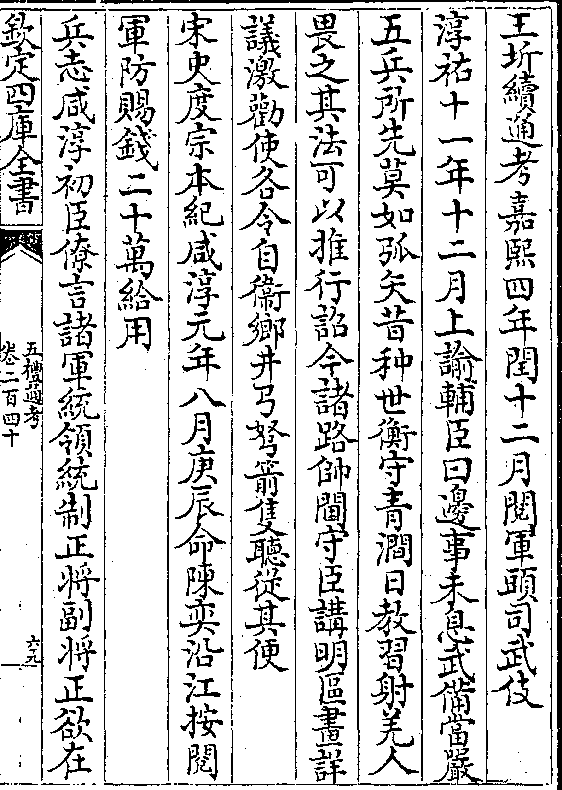 王圻續通考嘉熙四年閏十二月閱軍頭司武伎
淳祐十一年十二月上諭輔臣曰邊事未息武備當嚴
五兵所先莫如弧矢昔种世衡守青澗日教習射羌人
畏之其法可以推行詔令諸路帥閫守臣講明區畫詳
議激勸使各令自衛鄉井弓弩箭隻聽從其便
宋史度宗本紀咸淳元年八月庚辰命陳奕沿江按閱
軍防賜錢二十萬給用
兵志咸淳初臣僚言諸軍統領統制正將副將正欲在
欽定四庫全書
五禮通考
卷二百四十
六九